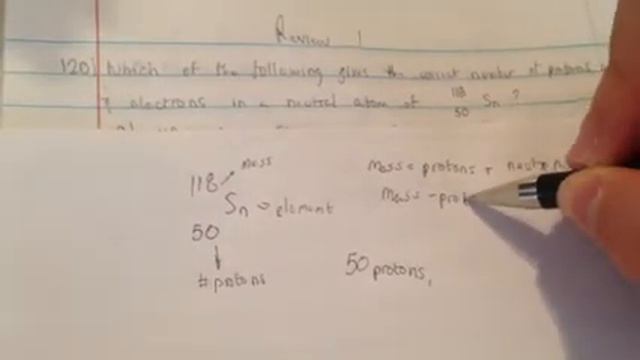 Review 1
120) Which of the following gives the correct number of protons
& electrons in a neutral atom of 118 50 Sn ?
118 → mass
Sn = element
50
↓
# protons
Mass = protons + neutron
Mass - prot
50 protons,